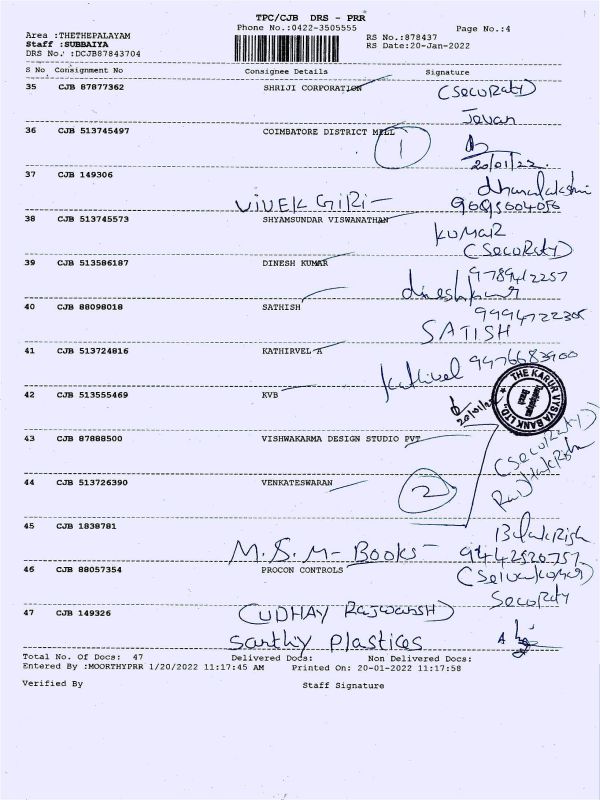 TPC/CJB DRS - PRR
Phone No.:0422-3505555 Page No.:4
Area :THETHEPALAYAM RS No.:878437
Staff :SUBBAIYA RS Date:20-Jan-2022
DRS No. :DCJB87843704
S No Consignment No Consignee Details Signature
35 CJB 87877362 SHRIJI CORPORATION (SecuRaty)
Jevan
36 CJB 513745497 COIMBATORE DISTRICT MELL 1
20/01/22
37 CJB 149306 dhanalakshmi
VIVEK GIRI- 9095604056
38 CJB 513745573 SHYAMSUNDAR VISWANATHAN KUMAR
(SecoRaty)
39 CJB 513586187 DINESH KUMAR 9789412257
dineshkumar
40 CJB 88098018 SATHISH 9994722305
SATISH
41 CJB 513724816 KATHIRVEL A
Kathivel 9976683900
42 CJB 513555469 KVB 20/01/22 THE KARUR VYSYA BANK LTD., Branch
43 CJB 87888500 VISHWAKARMA DESIGN STUDIO PVT (SecuRaty)
44 CJB 513726390 VENKATESWARAN 2
45 CJB 1838781
M.S.M- Books- 9442520757
46 CJB 88057354 PROCON CONTROLS (Selvakumar)
SecoRaty
47 CJB 149326 (UDHAY RAJWANSH)
Santhy Plastices
Total No. Of Docs: 47 Delivered Docs: Non Delivered Docs:
Entered By :MOORTHYPRR 1/20/2022 11:17:45 AM Printed On: 20-01-2022 11:17:58
Verified By Staff Signature